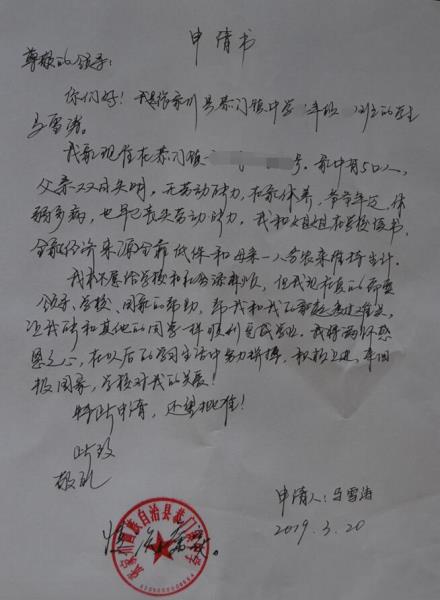 申请书
尊敬的领导:
你们好!我是张家川县恭门镇中学 年级 班的学生
马雪涛。
我家现住在恭门镇 号。家中有5口人,
父亲双目失明,无劳动能力,在家休养,爷爷年迈,体
弱多病,也早已丧失劳动能力,我和姐姐在学校读书,
全家经济来源全靠低保和母亲一人务农来维持生计。
我本不愿给学校和社会添麻烦,但我现在真的需要
领导、学校、国家的帮助,帮我和我的家庭渡过难关,
让我能和其他的同学一样顺利完成学业。我将满怀感
恩之心,在以后的学习生活中努力拼搏,积极上进,来回
报国家,学校对我的关爱!
特此申请,还望批准!
此致
敬礼
申请人:马雪涛
2019.3.20
张家川回族自治县恭门镇
情况属实。